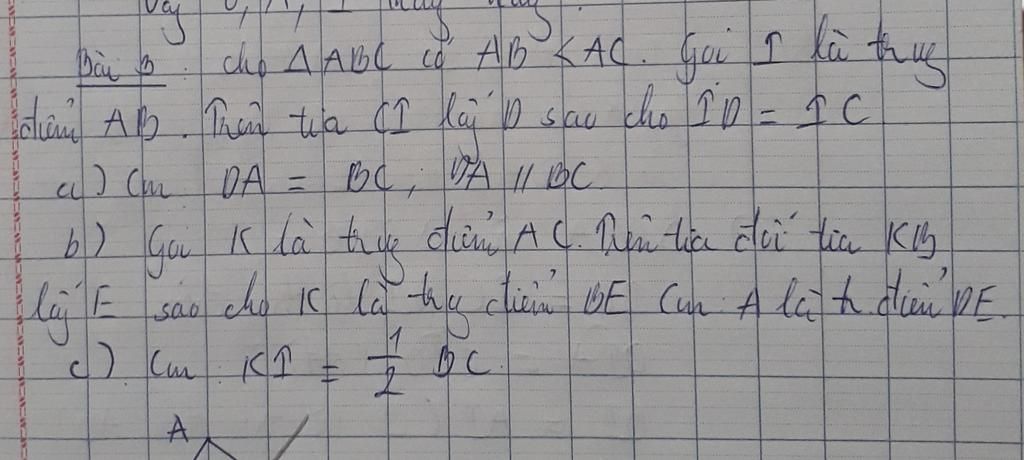 Bài B : cho ΔABC có AB < AC. Gọi I là trung
điểm AB. Trên tia CI lấy D sao cho ID = IC
a) Cm DA = BC; DA // BC
b) Gọi K là trung điểm AC. Trên tia đối tia KB
lấy E sao cho K là trung điểm BE Cm A là tr. điểm DE.
c) Cm KI = 1/2 BC
A